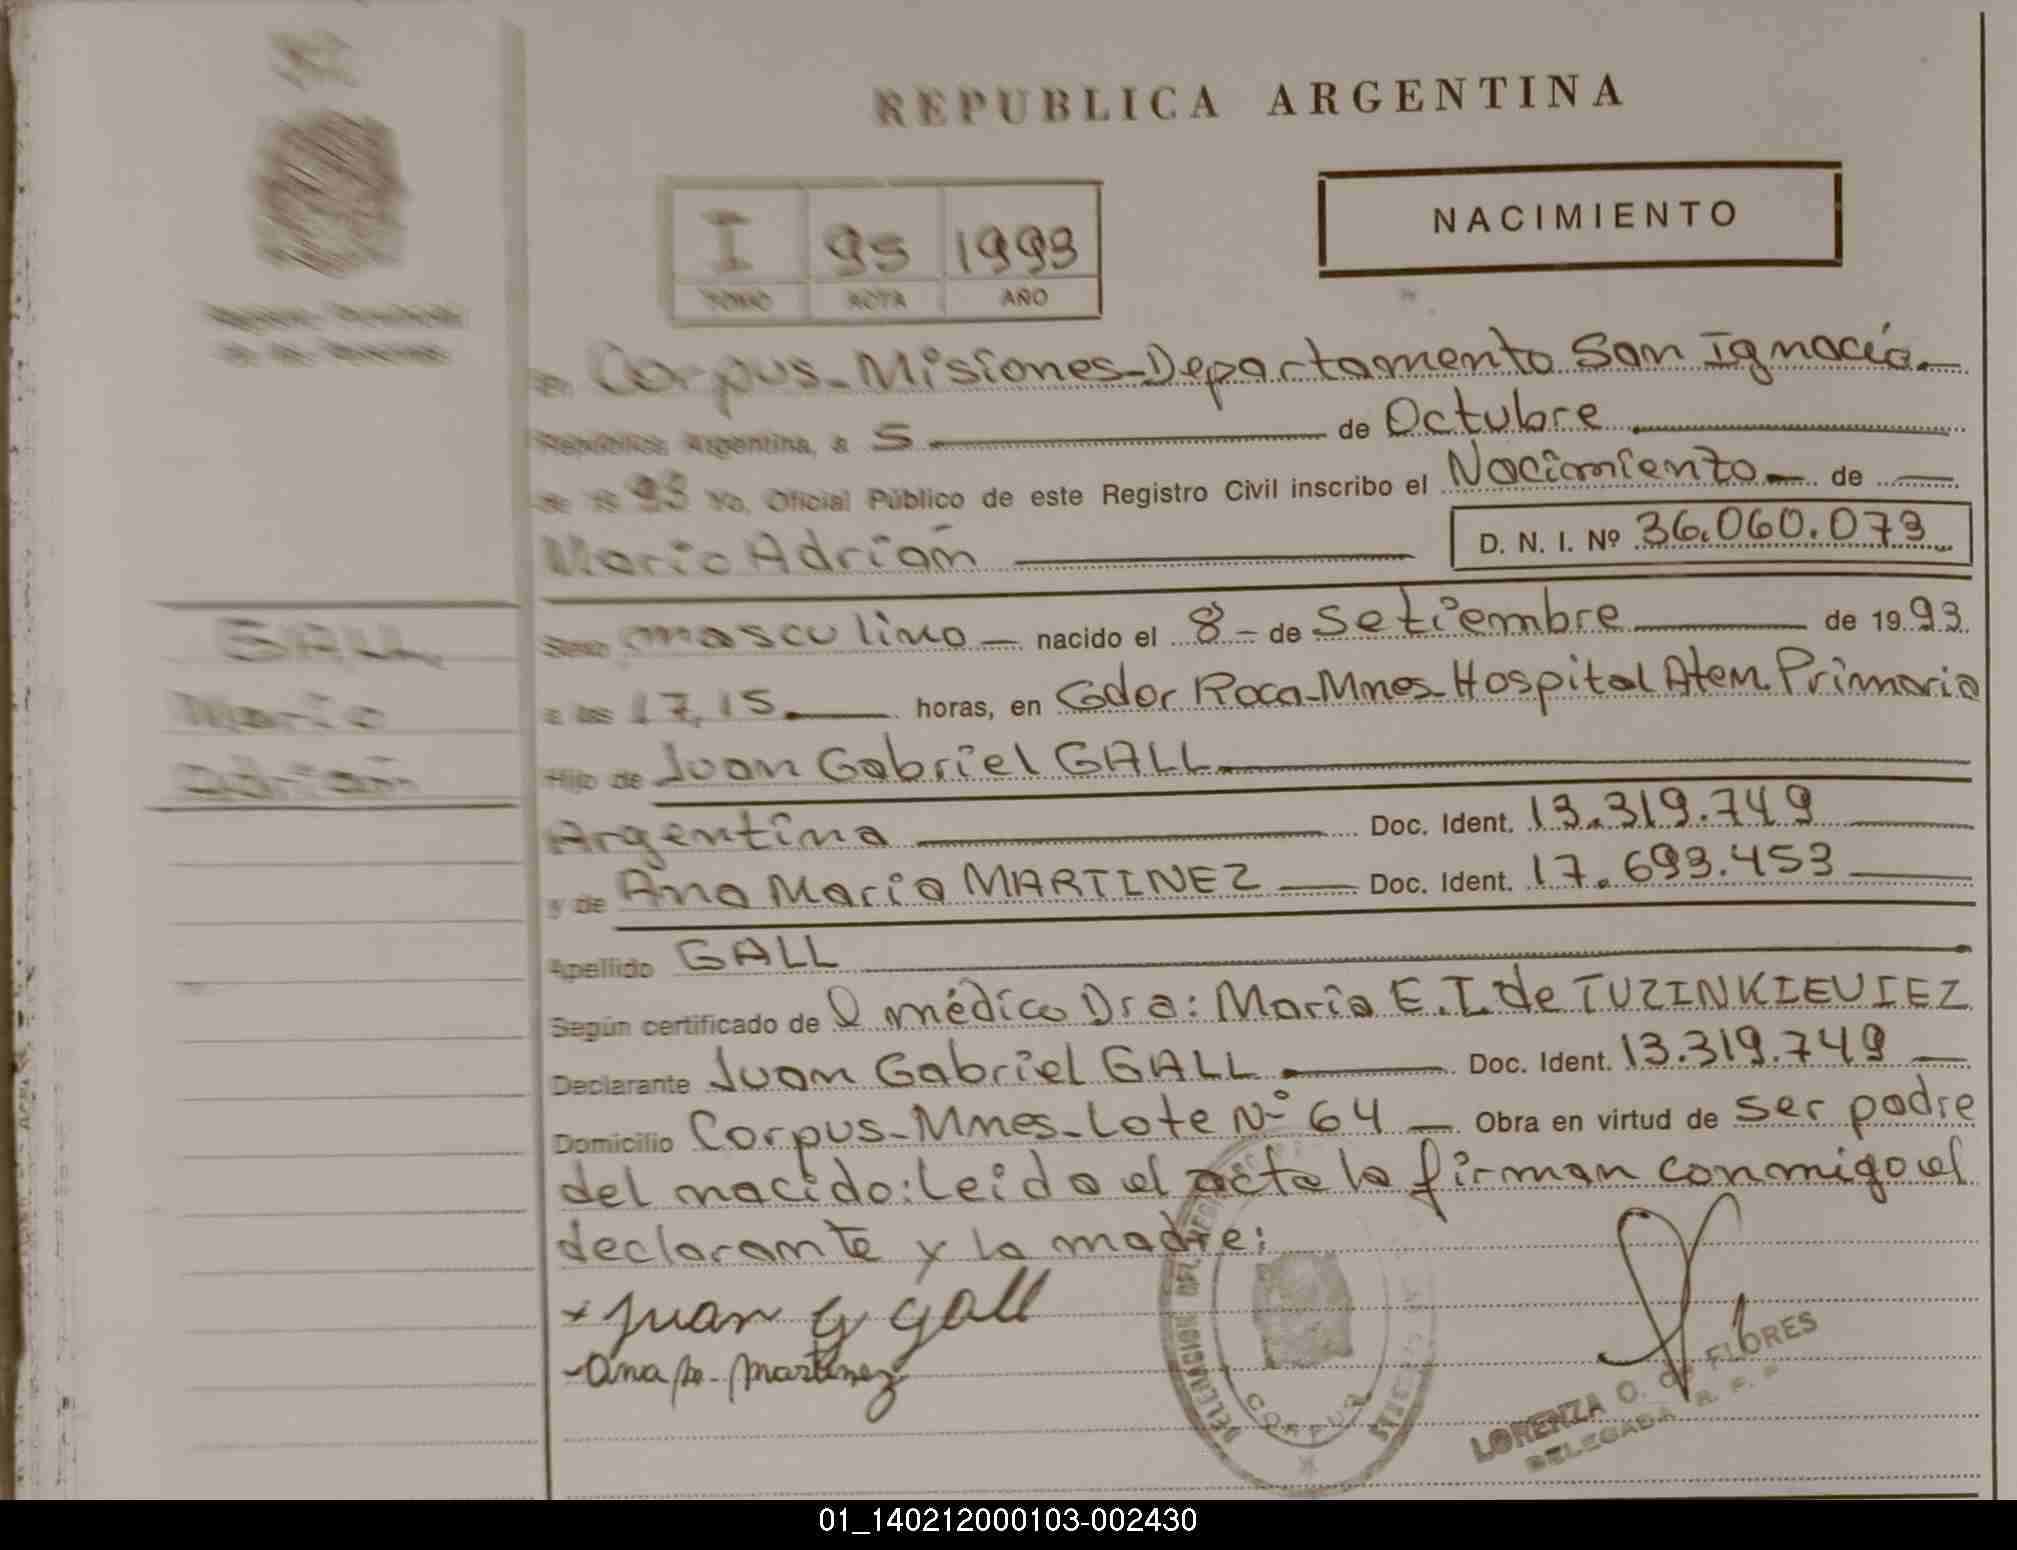 REPUBLICA ARGENTINA
NACIMIENTO
I 95 1993
TOMO ACTA AÑO
Registro Provincial
de las Personas
en Corpus-Misiones-Departamento San Ignacio
República Argentina, a 5 de Octubre
de 19 93 Yo, Oficial Público de este Registro Civil inscribo el Nacimiento de
Mario Adrian D. N. I. Nº 36.060.073
GALL
Mario
Adrian
Sexo masculino nacido el 8 de Setiembre de 1993
a las 17,15 horas, en Gdor Roca-Mnes-Hospital Aten. Primaria
Hijo de Juan Gabriel GALL
Argentina Doc. Ident. 13.319.749
y de Ana Maria MARTINEZ Doc. Ident. 17.693.453
Apellido GALL
Según certificado de l médico Dra: Maria E.I. de TUZINKIEVIEZ
Declarante Juan Gabriel GALL Doc. Ident. 13.319.749
Domicilio Corpus-Mnes-Lote Nº 64 Obra en virtud de ser padre
del nacido: Leida el acta la firman conmigo el
declarante y la madre:
Juan G Gall
Ana M. Martinez
DELEGACION DEL
CORPUS
LORENZA O. DE FLORES
DELEGADA R. P. P.
01_140212000103-002430